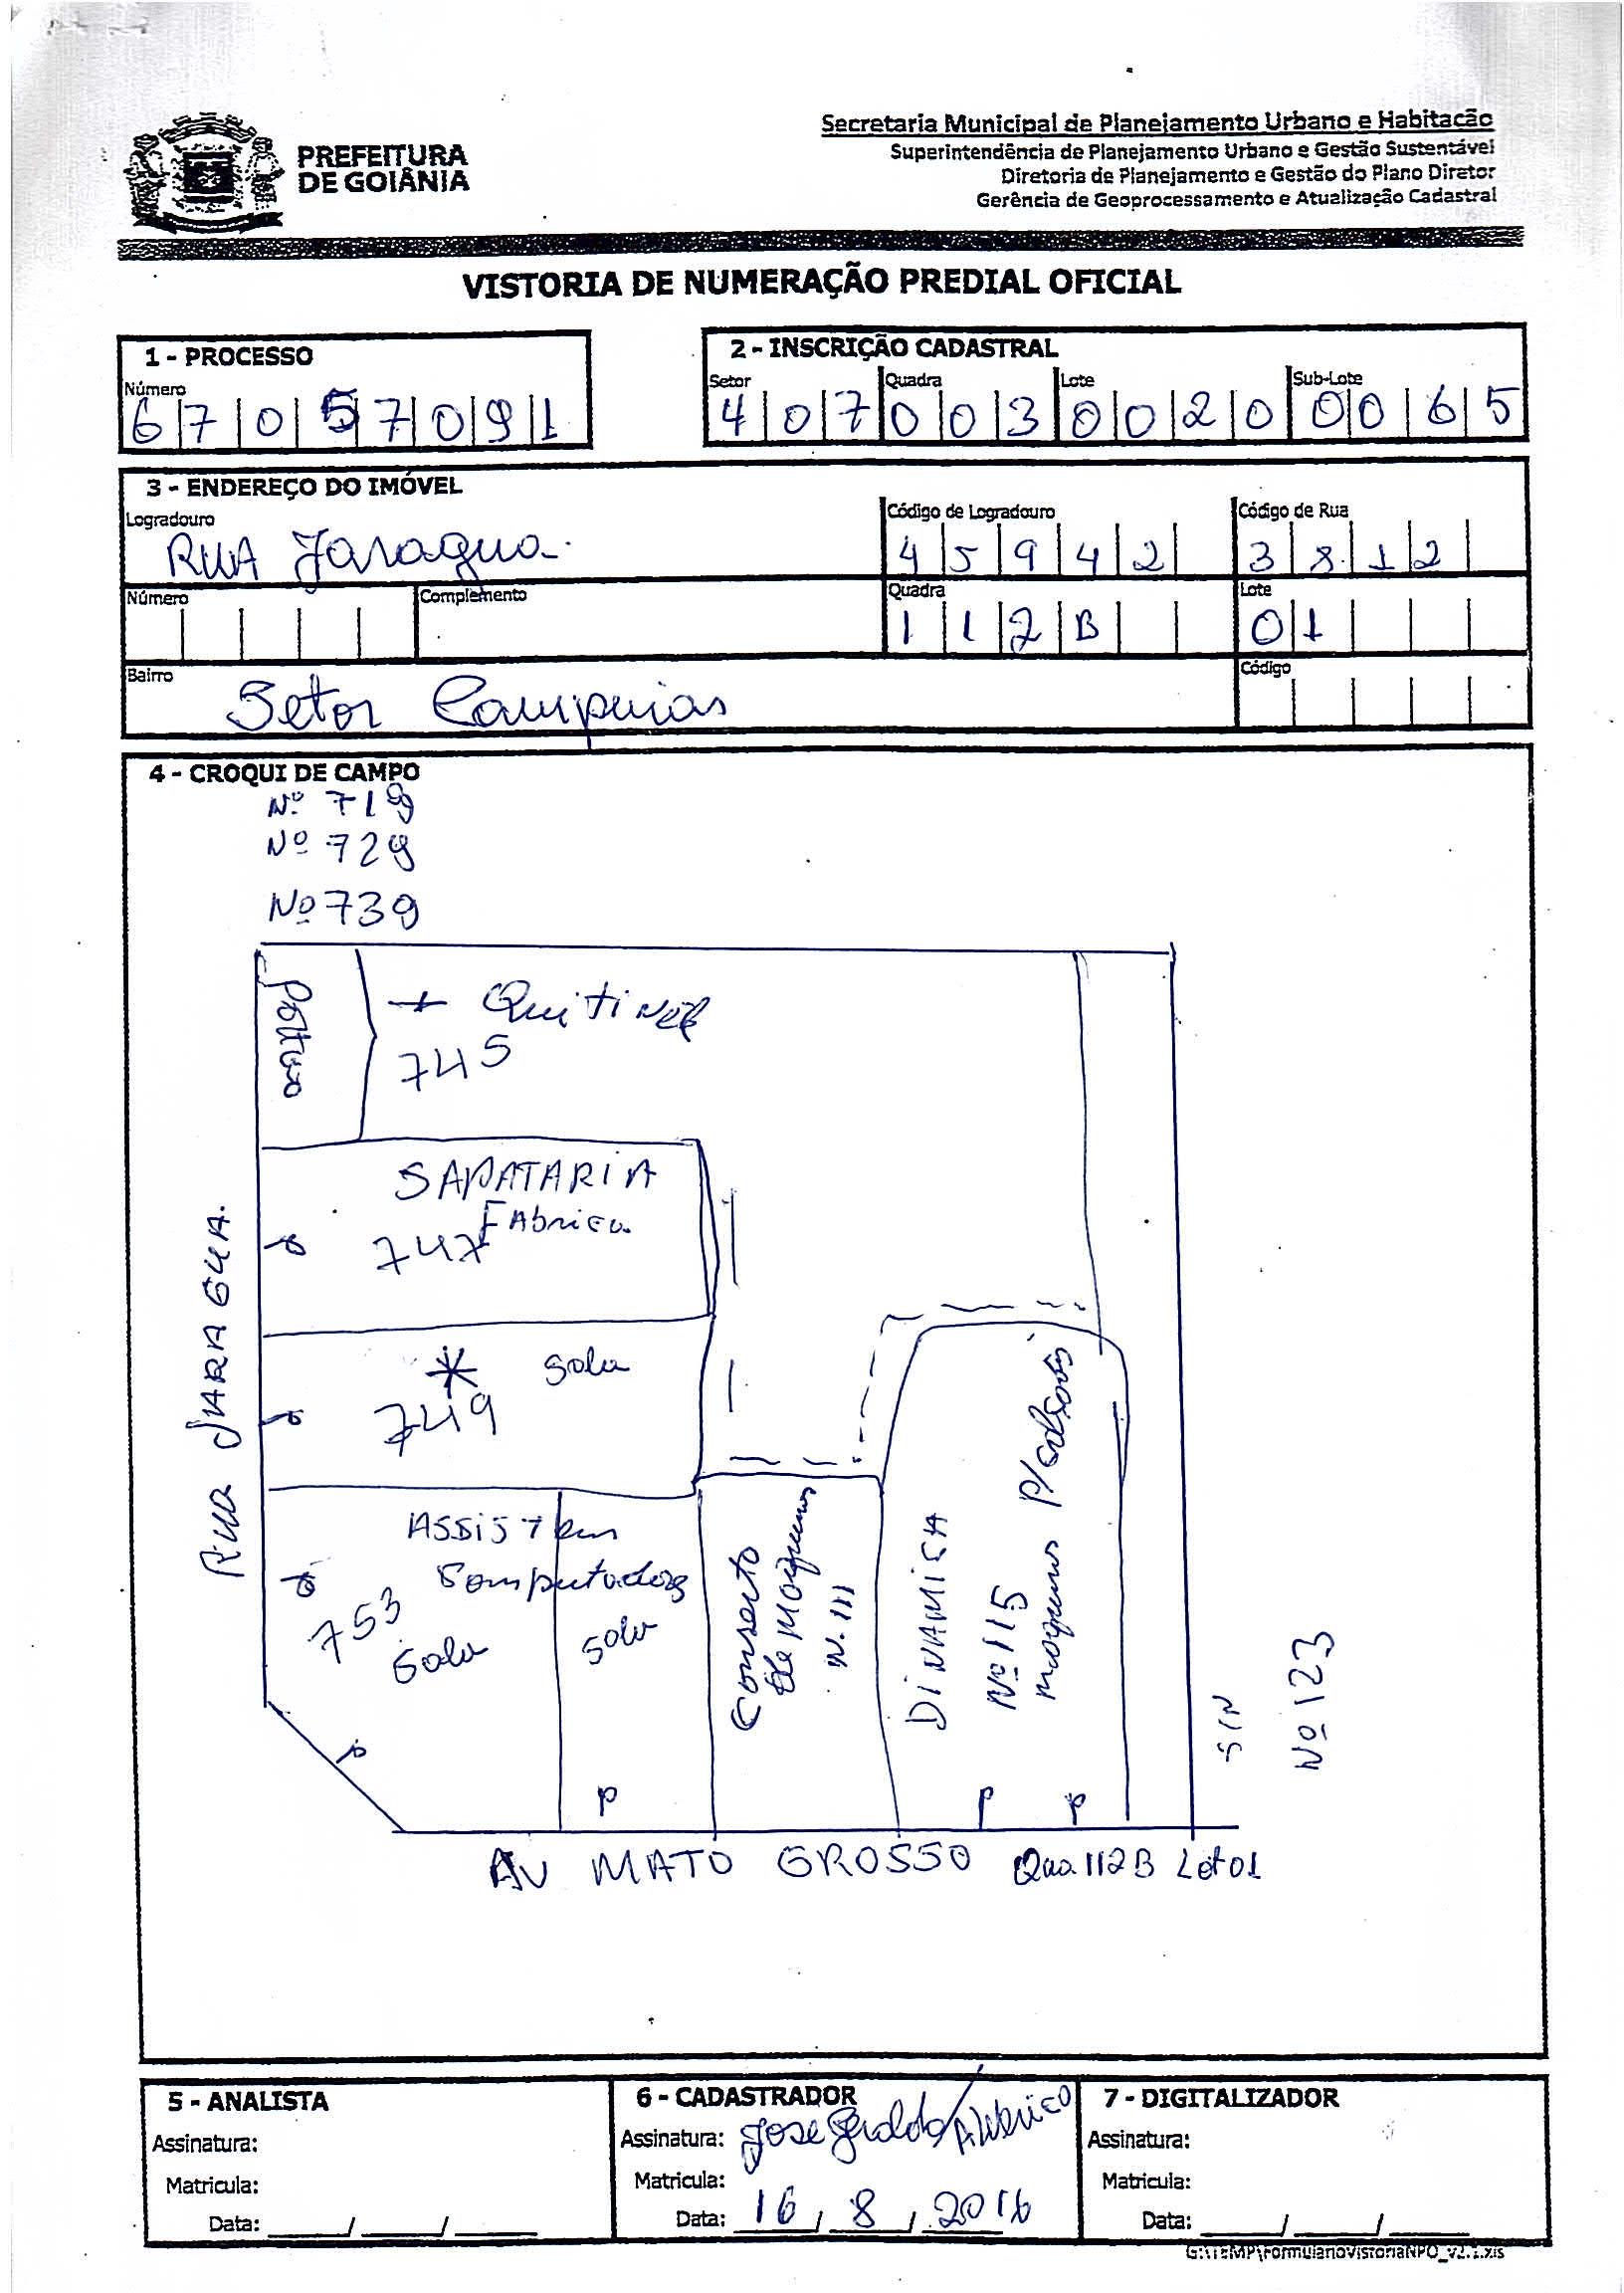 PREFEITURA
DE GOIÂNIA
Secretaria Municipal de Planejamento Urbano e Habitação
Superintendência de Planejamento Urbano e Gestão Sustentável
Diretoria de Planejamento e Gestão do Plano Diretor
Gerência de Geoprocessamento e Atualização Cadastral
VISTORIA DE NUMERAÇÃO PREDIAL OFICIAL
1 - PROCESSO
Número
6 7 0 5 7 0 9 1
2 - INSCRIÇÃO CADASTRAL
Setor Quadra Lote Sub-Lote
4 0 7 0 0 3 0 0 2 0 0 0 6 5
3 - ENDEREÇO DO IMÓVEL
Logradouro Código de Logradouro Código de Rua
RUA Jaragua. 4 5 9 4 2 3 8 1 2
Número Complemento Quadra Lote
1 1 2 B 0 1
Bairro Código
Setor Campinas
4 - CROQUI DE CAMPO
Nº 719
Nº 729
Nº 739
+ Quitinet
745
SAPATARIA
Fabrica
747
sala
749
RUA JARAGUA.
ASSISTEM
Computadores
753
Sala
sala
Conserto
de Maquinas
N. 111
DINAMICA
Nº 115
maquinas
P
P
P
P
S/N
Nº 123
AV MATO GROSSO Qua. 112B Lot 01
5 - ANALISTA
Assinatura:
Matricula:
Data: ___/___/___
6 - CADASTRADOR
Assinatura: Jose Geraldo
Matricula:
Data: 16 / 8 / 2016
7 - DIGITALIZADOR
Assinatura:
Matricula:
Data: ___/___/___
G:\TEMP\FormularioVistoriaNPO_v2.1.xls